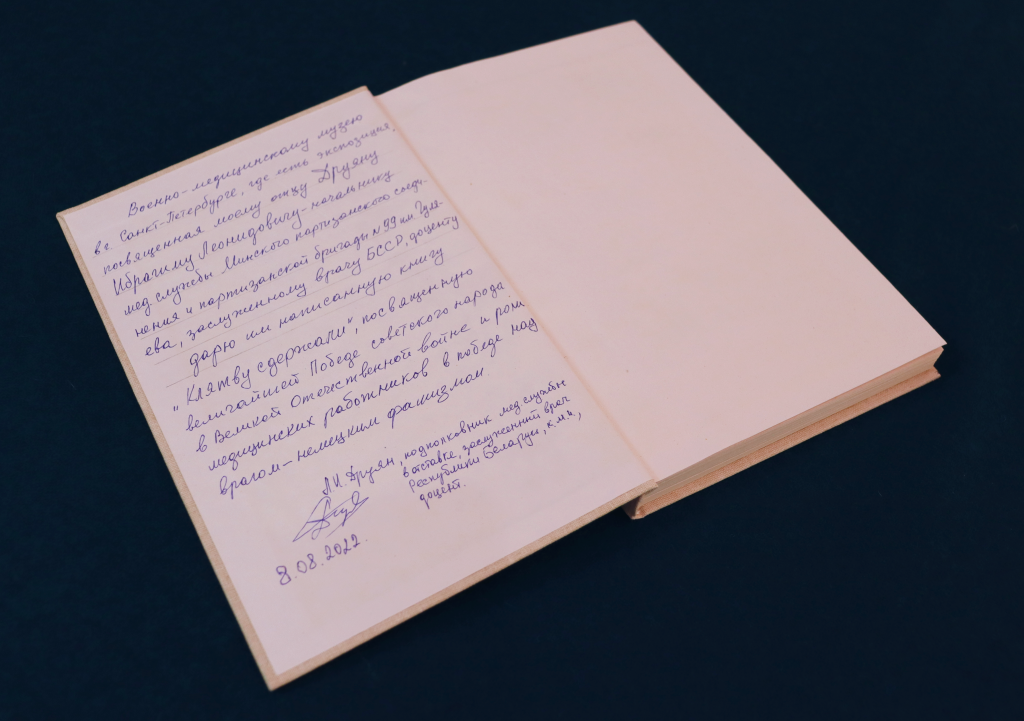 Военно-медицинскому музею
в г. Санкт-Петербурге, где есть экспозиция,
посвященная моему отцу Друяну
Ибрагиму Леонидовичу - начальнику
мед. службы Минского партизанского соеди-
нения и партизанской бригады №99 им. Гуля-
ева, заслуженному врачу БССР, доценту
дарю им написанную книгу
"Клятву сдержали", посвященную
величайшей Победе советского народа
в Великой Отечественной войне и роли
медицинских работников в победе над
врагом - немецким фашизмом.
Л.И. Друян, подполковник мед. службы
в отставке, заслуженный врач
Республики Беларусь, к.м.н.,
доцент.
8.08.2022.